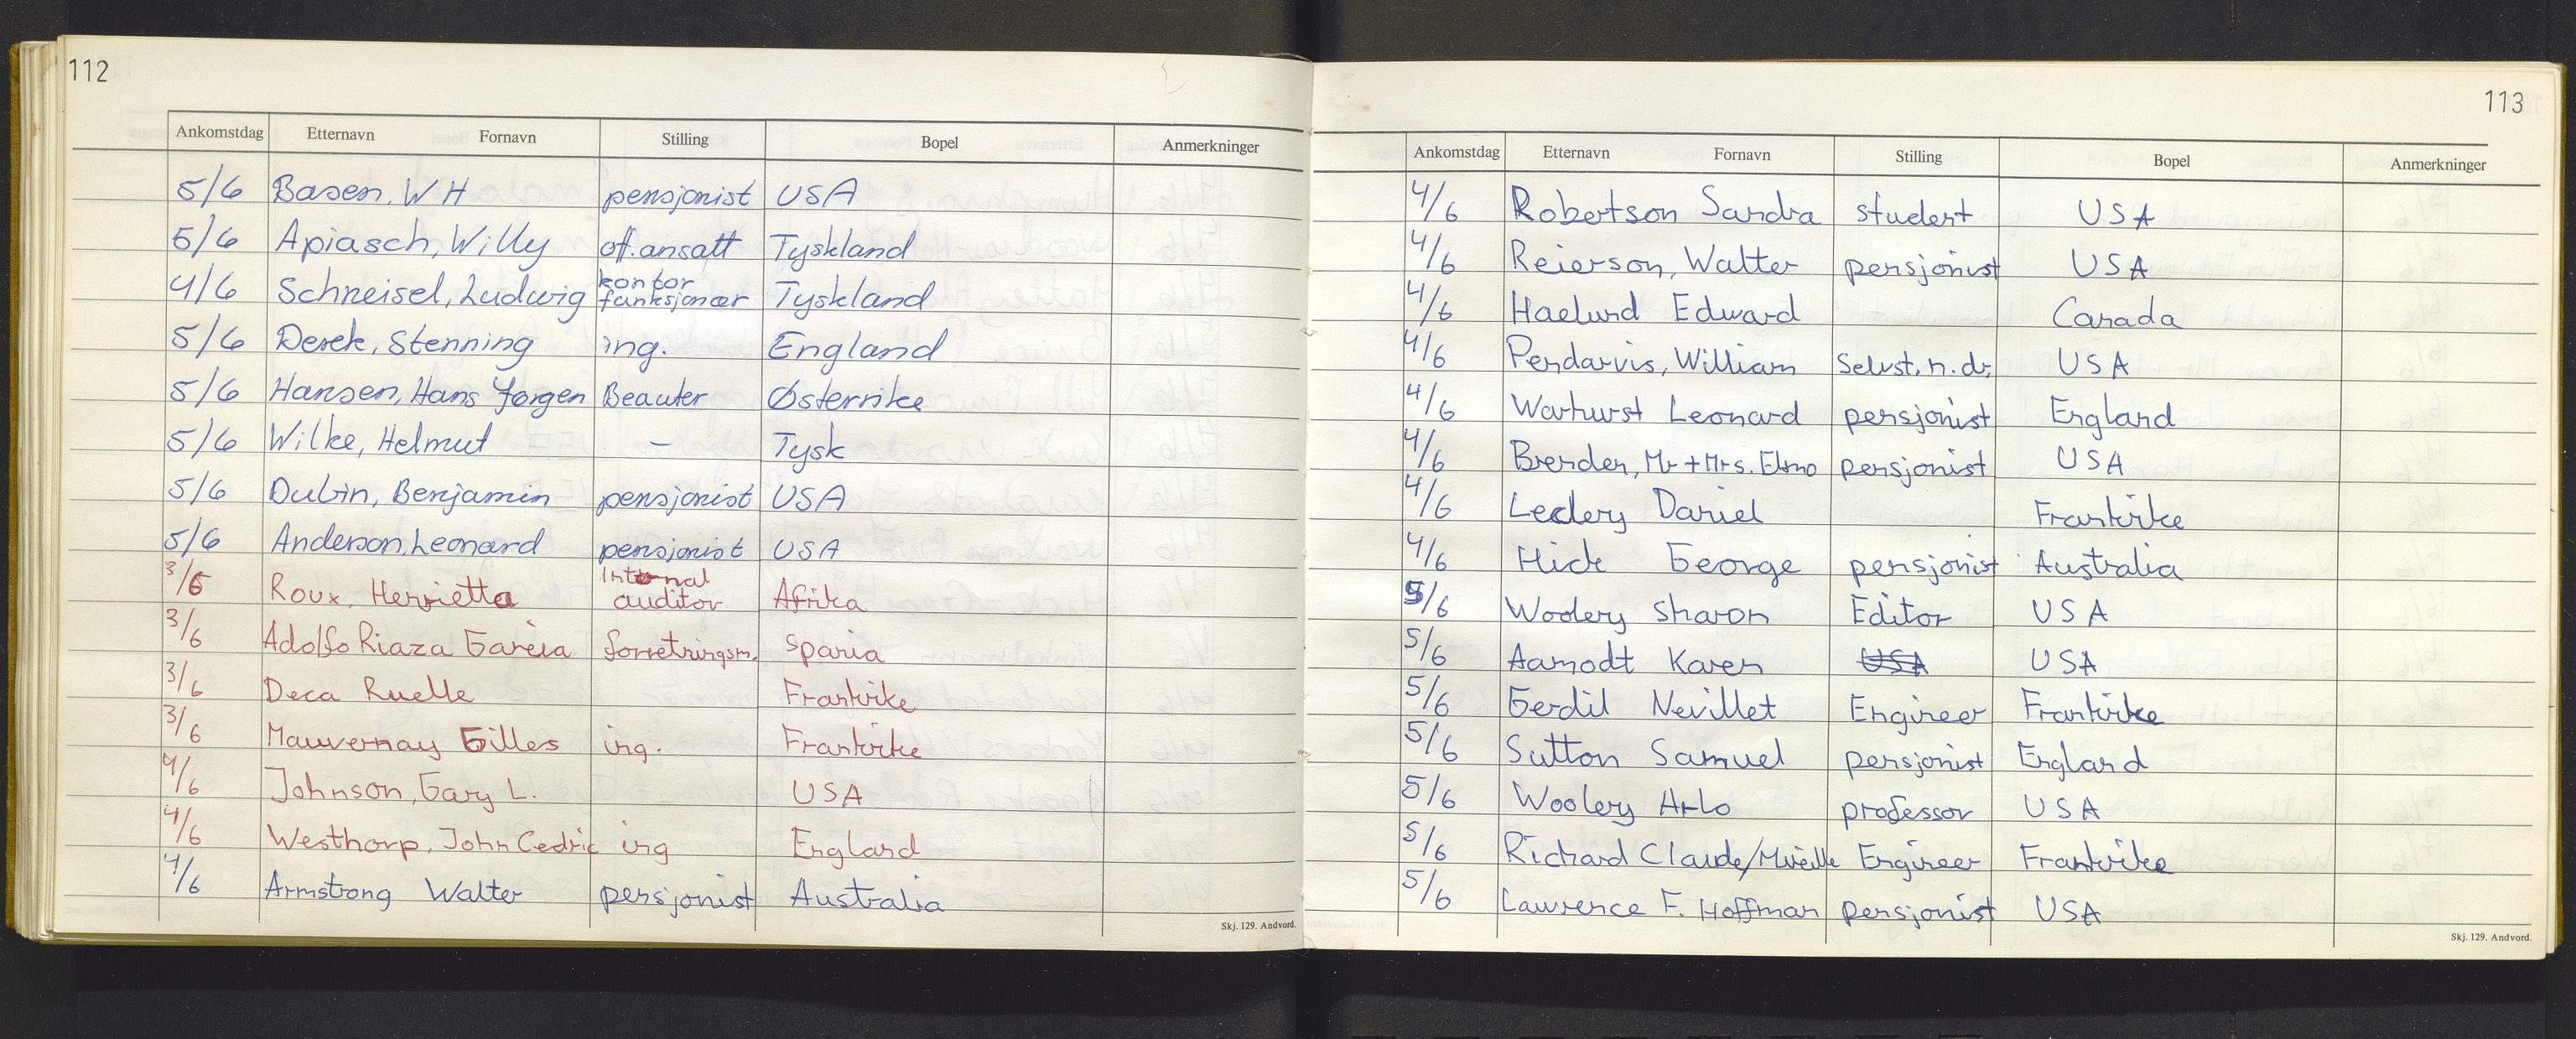 112
Ankomstdag Etternavn Fornavn Stilling Bopel Anmerkninger
5/6 Basen, W H pensjonist USA
5/6 Apiasch, Willy off. ansatt Tyskland
4/6 Schneisel, Ludwig kontor funksjonær Tyskland
5/6 Derek, Stenning ing. England
5/6 Hansen, Hans Jørgen Beauter Østerrike
5/6 Wilke, Helmut – Tysk
5/6 Dubin, Benjamin pensjonist USA
5/6 Anderson, Leonard pensjonist USA
3/6 Roux, Henrietta Internal auditor Afrika
3/6 Adolfo Riaza Garcia forretningsm. Spania
3/6 Deca Ruelle Frankrike
3/6 Mauvernay Gilles ing. Frankrike
4/6 Johnson, Gary L. USA
4/6 Westhorp, John Cedric ing England
4/6 Armstrong Walter pensjonist Australia
Skj. 129. Andvord.
113
Ankomstdag Etternavn Fornavn Stilling Bopel Anmerkninger
4/6 Robertson Sandra student USA
4/6 Reierson, Walter pensjonist USA
4/6 Haelund Edward Canada
4/6 Pendarvis, William Selvst. n. dr. USA
4/6 Warhurst Leonard pensjonist England
4/6 Brenden, Mr + Mrs. Elmo pensjonist USA
4/6 Leclery Daniel Frankrike
4/6 Hick George pensjonist Australia
5/6 Woolery Sharon Editor USA
5/6 Aamodt Karen USA USA
5/6 Gerdil Nevillet Engineer Frankrike
5/6 Sutton Samuel pensjonist England
5/6 Woolery Arlo professor USA
5/6 Richard Claude/Mireille Engineer Frankrike
5/6 Lawrence F. Hoffman pensjonist USA
Skj. 129. Andvord.